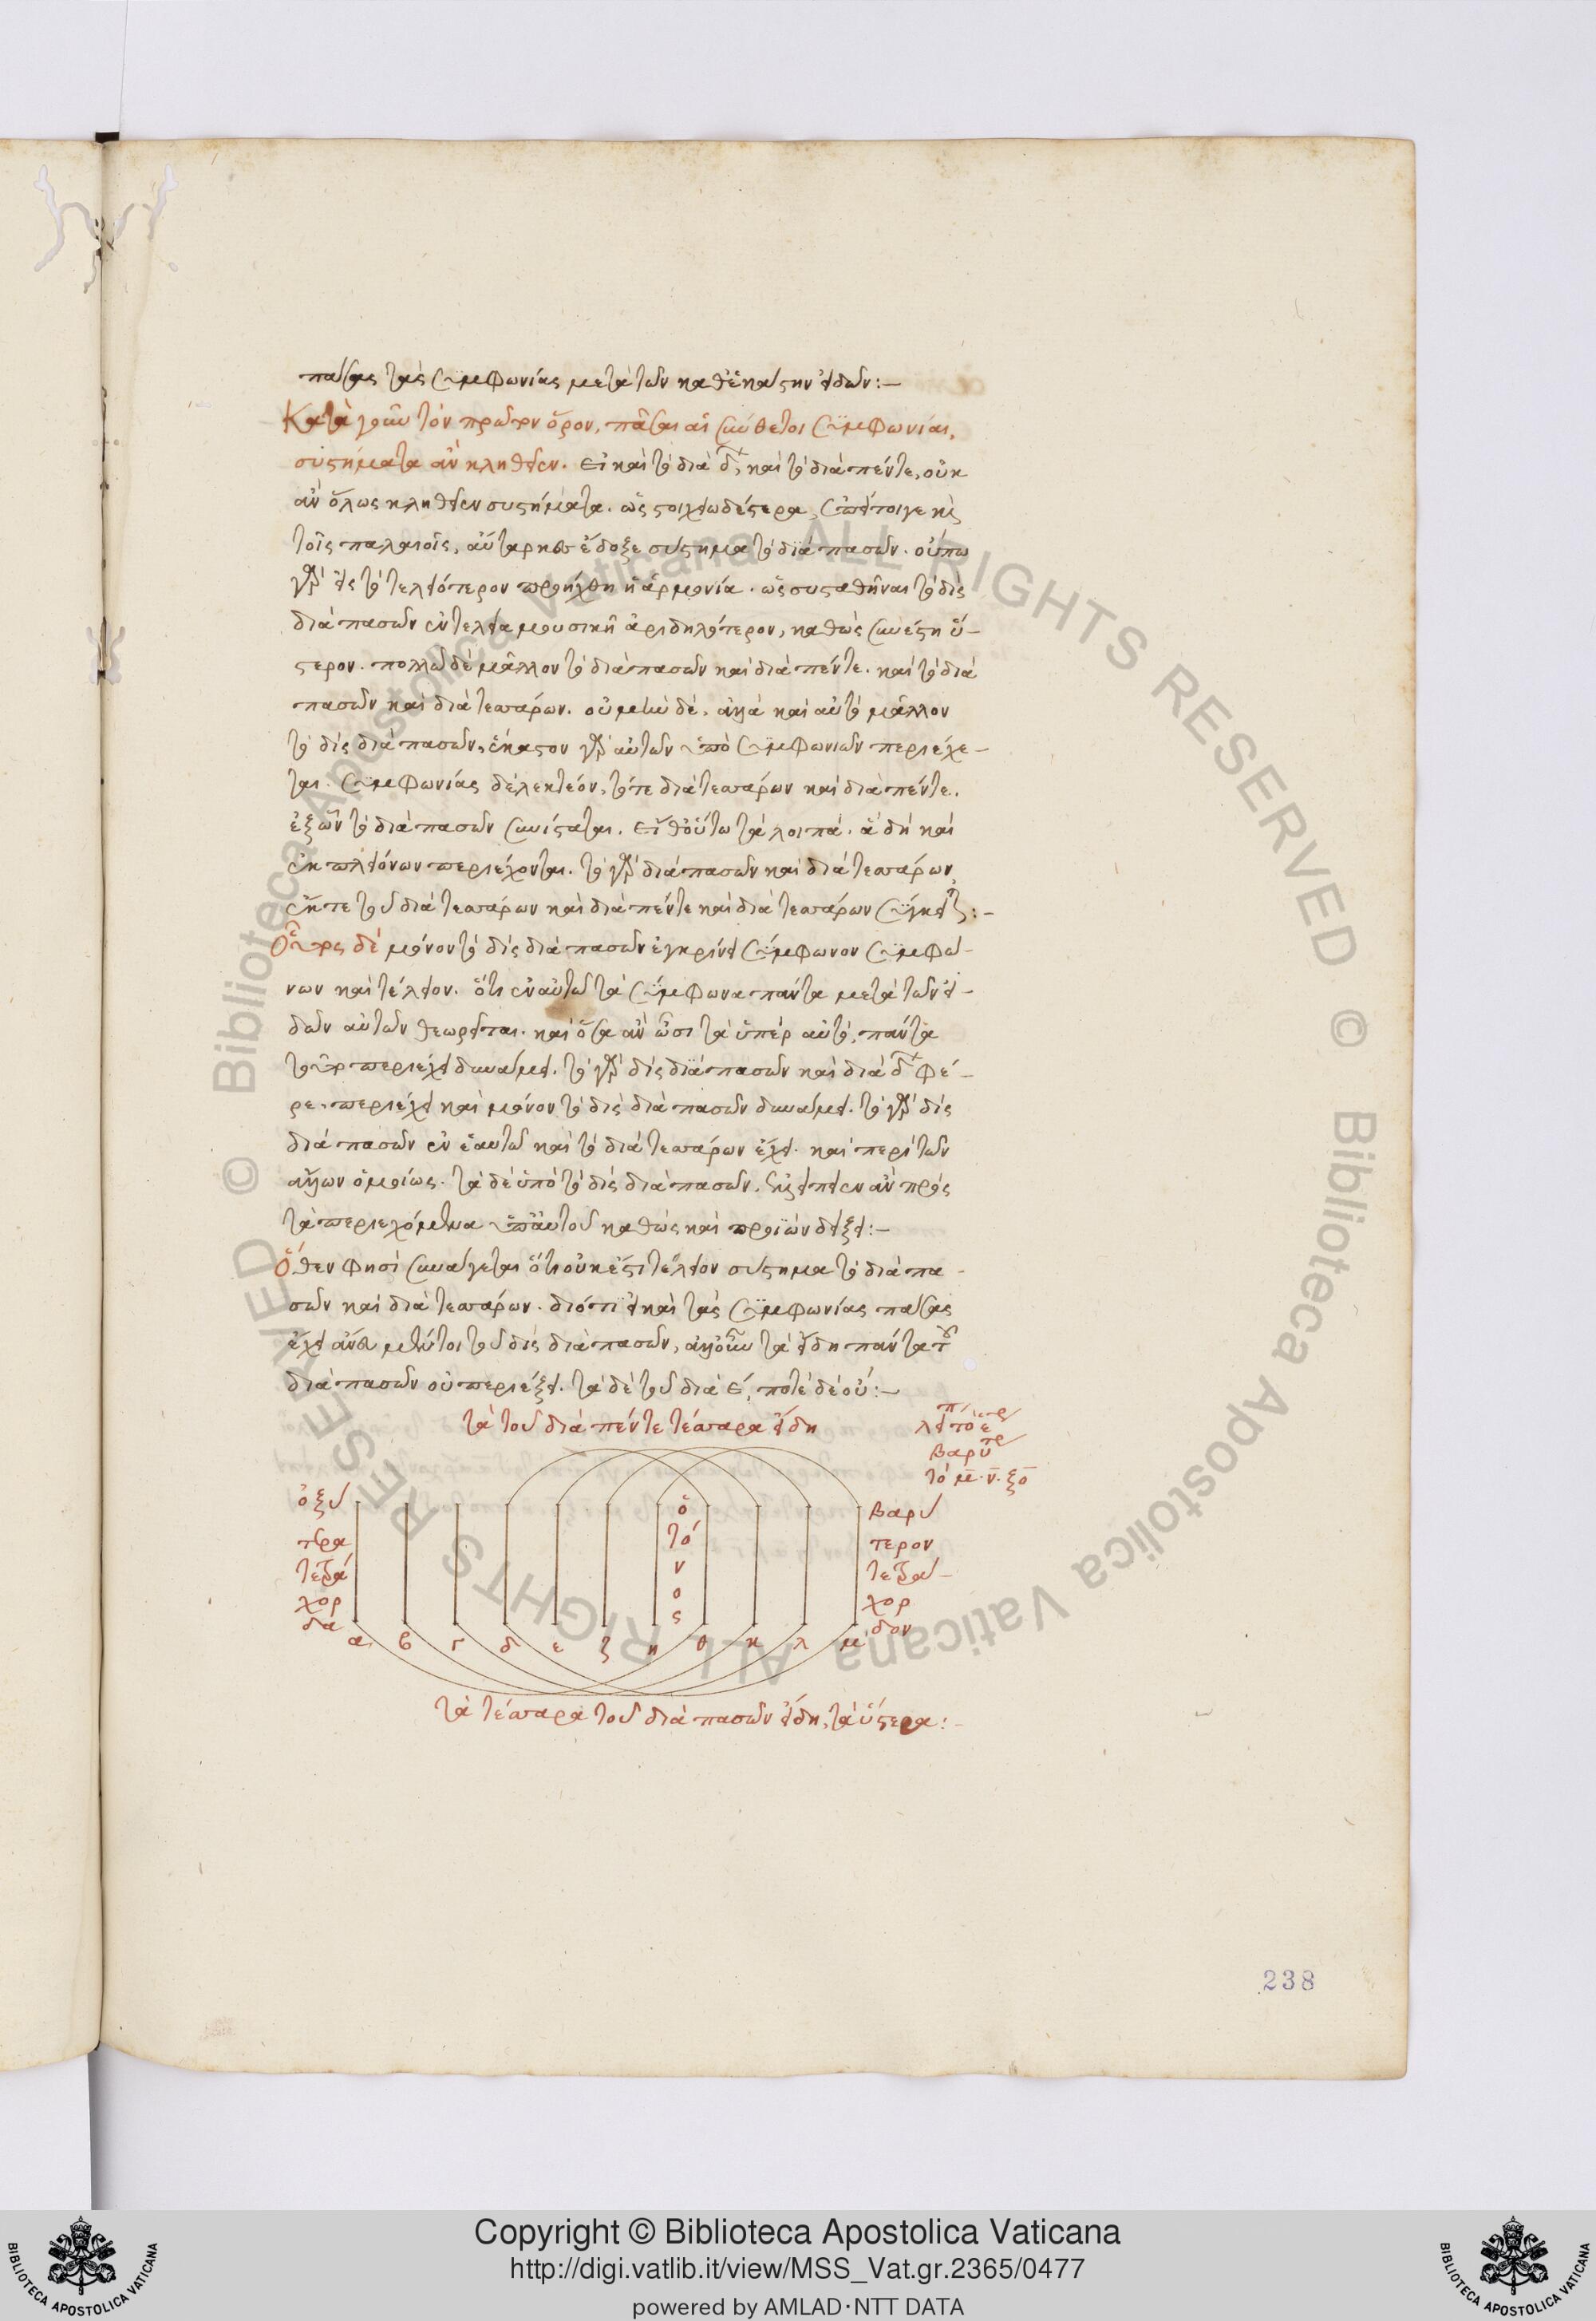 πάσας τὰς συμφωνίας μετὰ τῶν καθ' ἑκάστην εἰδῶν:–
Κατὰ γοῦν τὸν πρῶτον ὅρον, πᾶσαι αἱ σύνθετοι συμφωνίαι,
συστήματα ἂν κληθεῖεν. εἰ καὶ τὸ διὰ δ, καὶ τὸ διὰ πέντε, οὐκ
ἂν ὅλως κληθεῖεν συστήματα. ὡς στοιχειωδέστερα, ἐπείτοιγε καὶ
τοῖς παλαιοῖς, αὔταρκες ἔδοξε σύστημα τὸ διὰ πασῶν. οὔπω
γὰρ εἰς τὸ τελειότερον προήχθη ἡ ἁρμονία. ὡς συσταθῆναι τὸ δὶς
διὰ πασῶν ἐν τελείᾳ μουσικῇ ἀριδηλότερον, καθὼς συνέστη ὕ–
στερον. πολλῷ δὲ μᾶλλον τὸ διὰ πασῶν καὶ διὰ πέντε. καὶ τὸ διὰ
πασῶν καὶ διὰ τεσσάρων. οὐ μὴν δὲ, ἀλλὰ καὶ αὐτὸ μᾶλλον
τὸ δὶς διὰ πασῶν, ἕκαστον γὰρ αὐτῶν ὑπὸ συμφωνιῶν περιέχε–
ται. συμφωνίας δὲ λεκτέον, τό τε διὰ τεσσάρων καὶ διὰ πέντε.
ἐξ ὧν τὸ διὰ πασῶν συνίσταται. εἶθ' οὕτω τὰ λοιπά. ἃ δὴ καὶ
ἐκ πλειόνων περιέχονται. τὸ γὰρ διὰ πασῶν καὶ διὰ τεσσάρων,
ἔκ τε τοῦ διὰ τεσσάρων καὶ διὰ πέντε καὶ διὰ τεσσάρων σύγκειται:–
Οὗτος δὲ μόνον τὸ δὶς διὰ πασῶν ἐγκρίνει σύμφωνον συμφώ–
νων καὶ τέλειον. ὅτι ἐν αὐτῷ τὰ σύμφωνα πάντα μετὰ τῶν εἰ–
δῶν αὐτῶν θεωρεῖται. καὶ ὅσα ἂν ὦσι τὰ ὑπὲρ αὐτὸ, πάντα
τοῦτο περιέχει δυνάμει. τὸ γὰρ δὶς διὰ πασῶν καὶ διὰ δ φέ–
ρε, περιέχει καὶ μόνον τὸ δὶς διὰ πασῶν δυνάμει. τὸ γὰρ δὶς
διὰ πασῶν ἐν ἑαυτῷ καὶ τὸ διὰ τεσσάρων ἔχει. καὶ περὶ τῶν
ἄλλων ὁμοίως. τὰ δὲ ὑπὸ τὸ δὶς διὰ πασῶν, ἐλλείπειεν ἂν πρὸς
τὰ περιεχόμενα ὑπ' αὐτοῦ καθὼς καὶ προϊὼν δείξει:–
Ὅθεν φησὶ συνάγεται ὅτι οὐκ ἔστι τέλειον σύστημα τὸ διὰ πα–
σῶν καὶ διὰ τεσσάρων. διότι εἰ καὶ τὰς συμφωνίας πάσας
ἔχει ἄνευ μέντοι τοῦ δὶς διὰ πασῶν, ἀλλ' οὖν τὰ εἴδη πάντα τοῦ
διὰ πασῶν οὐ περιέξει. τὰ δὲ τοῦ διὰ ε, ποτὲ δὲ οὐ:–
τὰ τοῦ διὰ πέντε τέσσαρα εἴδη
τὸ μ ν ξο
ὀξύ
τερα
τετρά
χορ
δα
ὁ
τό
ν
ο
ς
βαρύ
τερον
τετρά–
χορ
δον
α β γ δ ε ζ η θ κ λ μ
τὰ τέσσαρα τοῦ διὰ πασῶν εἴδη, τὰ ὕστερα:–
238
Copyright © Biblioteca Apostolica Vaticana
http://digi.vatlib.it/view/MSS_Vat.gr.2365/0477
powered by AMLAD·NTT DATA
BIBLIOTECA APOSTOLICA VATICANA
BIBLIOTECA APOSTOLICA VATICANA
© Biblioteca Apostolica Vaticana ALL RIGHTS RESERVED © Biblioteca Apostolica Vaticana ALL RIGHTS RESERVED